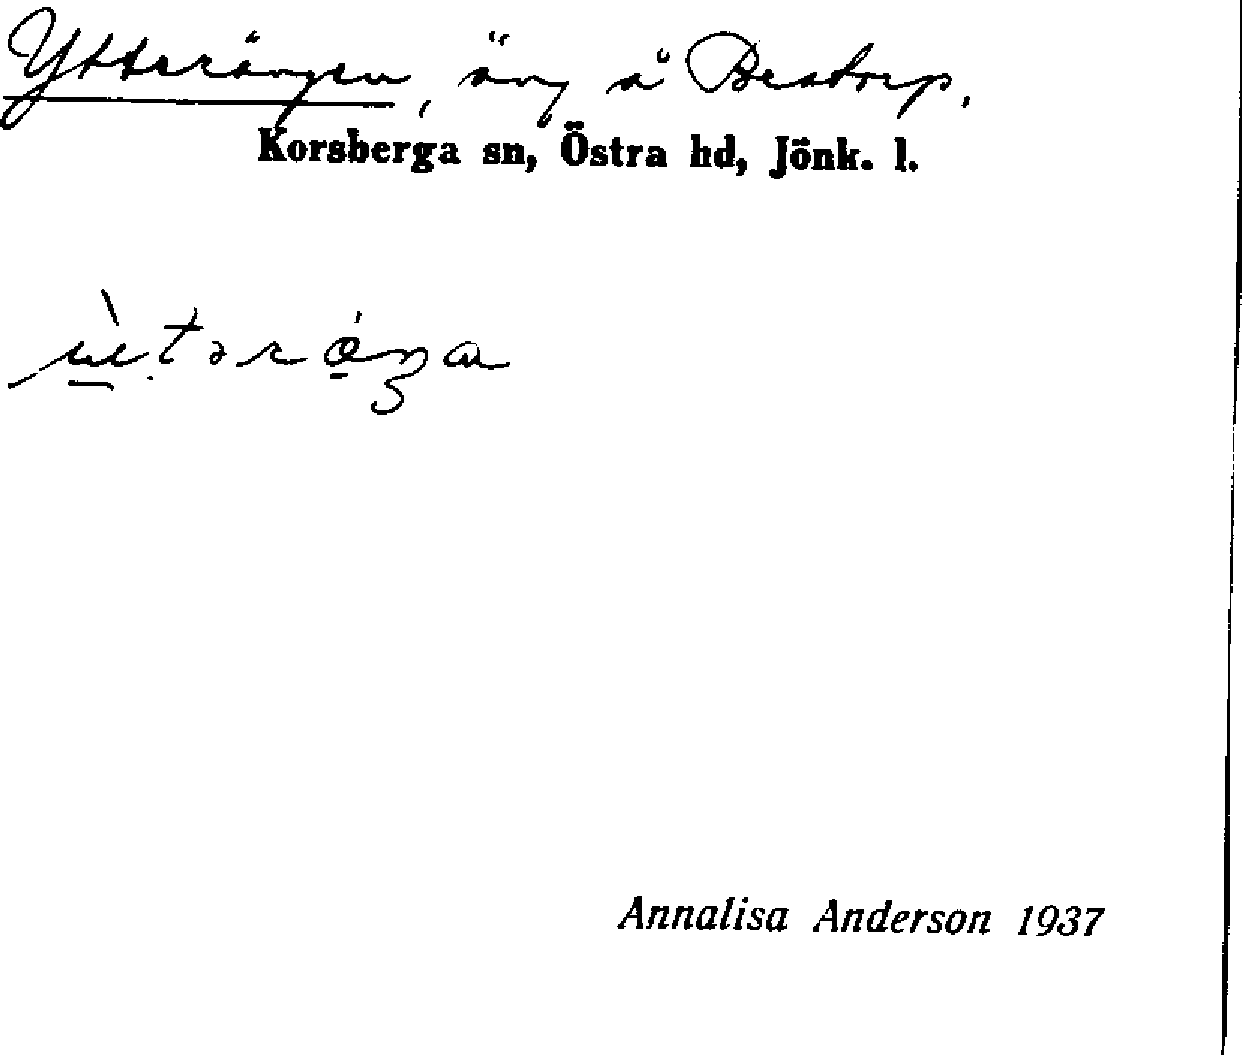 Ytterängen, äng å Bestorp.
Korsberga sn, Östra hd, Jönk. l.
Annalisa Anderson 1937